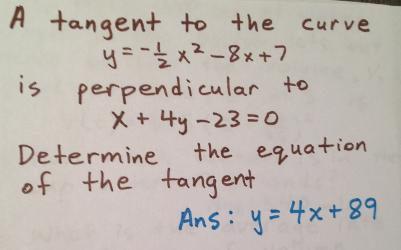 A tangent to the curve
y = -½ x² - 8x + 7
is perpendicular to
x + 4y - 23 = 0
Determine the equation
of the tangent
Ans: y = 4x + 89